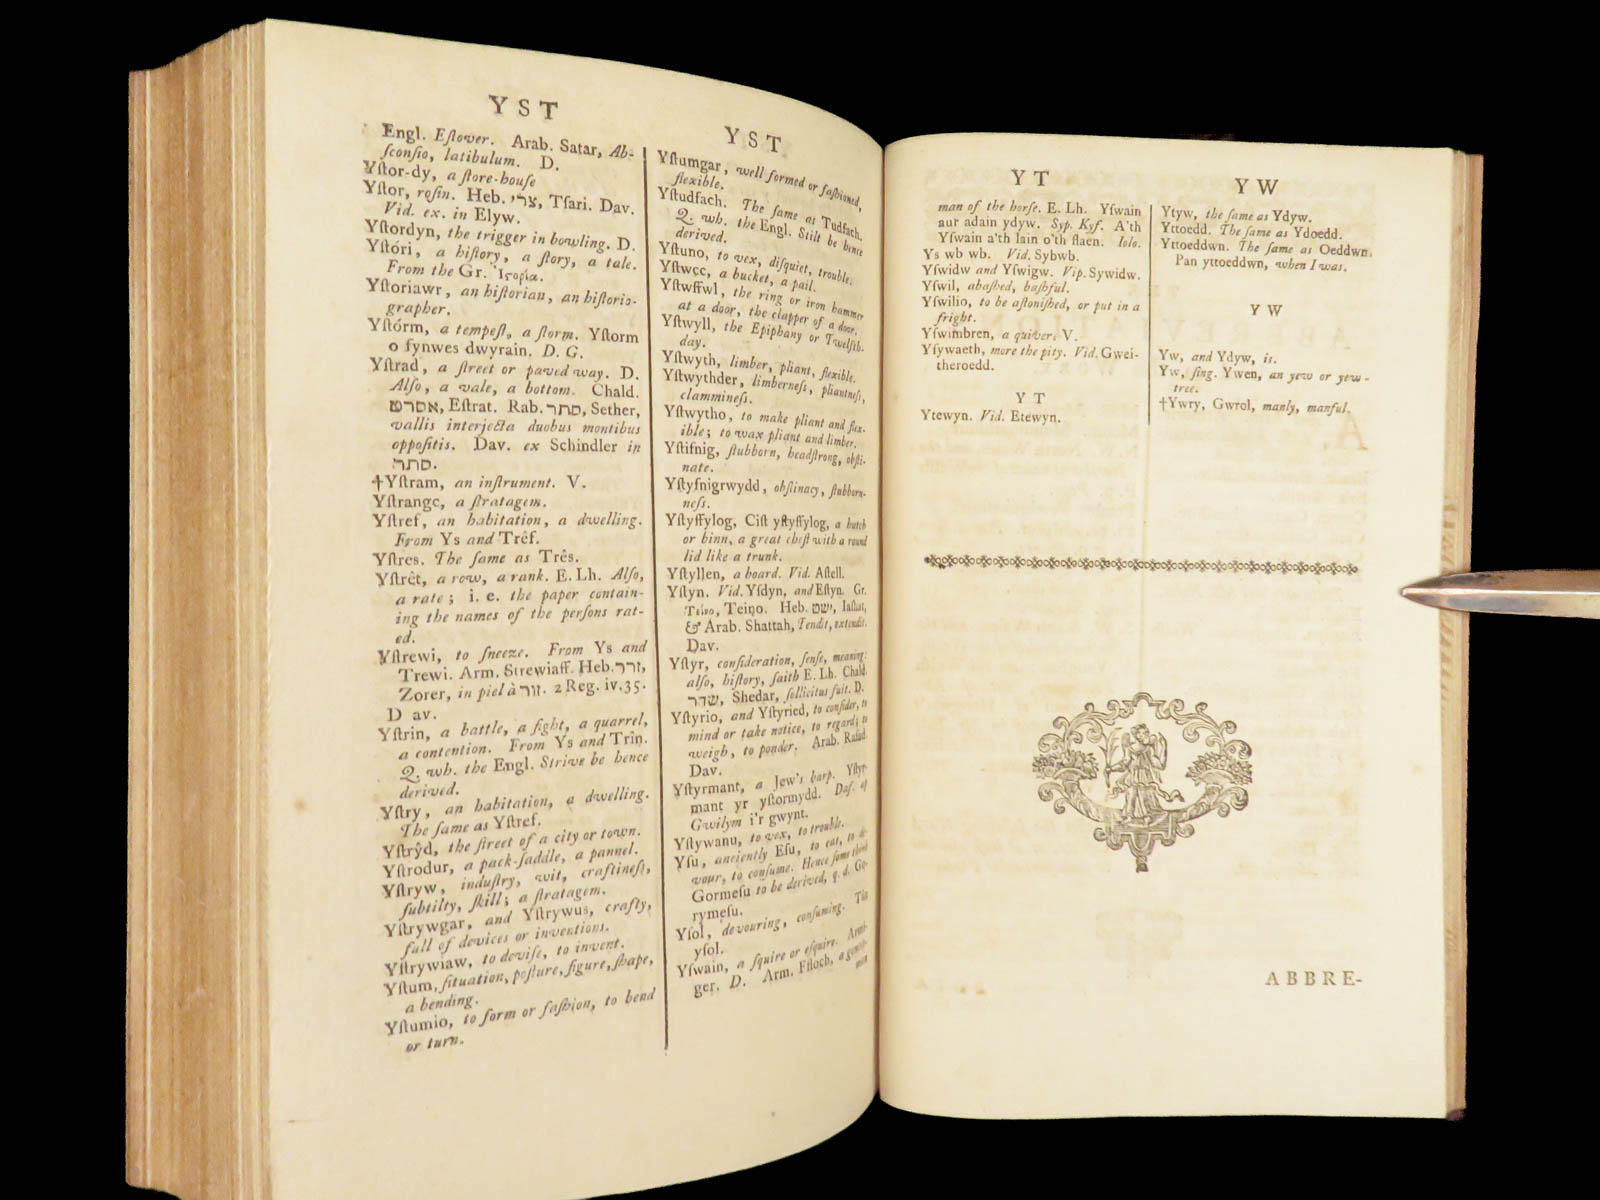 YST
Engl. Eſtover. Arab. Satar, Ab-
ſconſio, latibulum. D.
Yſtor-dy, a ſtore-houſe
Yſtor, roſin. Heb. צרי, Tſari. Dav.
Vid. ex. in Elyw.
Yſtordyn, the trigger in bowling. D.
Yſtóri, a hiſtory, a ſtory, a tale.
From the Gr. Ἱςορία.
Yſtoriawr, an hiſtorian, an hiſtorio-
grapher.
Yſtórm, a tempeſt, a ſtorm. Yſtorm
o fynwes dwyrain. D. G.
Yſtrad, a ſtreet or paved way. D.
Alſo, a vale, a bottom. Chald.
אסרט, Eſtrat. Rab. סתר, Sether,
vallis interjecta duobus montibus
oppoſitis. Dav. ex Schindler in
סתר.
†Yſtram, an inſtrument. V.
Yſtrange, a ſtratagem.
Yſtref, an habitation, a dwelling.
From Ys and Trêf.
Yſtres. The ſame as Três.
Yſtrêt, a row, a rank. E. Lh. Alſo,
a rate; i. e. the paper contain-
ing the names of the perſons rat-
ed.
Yſtrewi, to ſneeze. From Ys and
Trewi. Arm. Strewiaff. Heb. זרר,
Zorer, in piel à זור. 2 Reg. iv. 35.
D av.
Yſtrin, a battle, a fight, a quarrel,
a contention. From Ys and Trîn.
Q. wh. the Engl. Strive be hence
derived.
Yſtry, an habitation, a dwelling.
The ſame as Yſtref.
Yſtrŷd, the ſtreet of a city or town.
Yſtrodur, a pack-ſaddle, a pannel.
Yſtryw, induſtry, wit, craftineſs,
ſubtilty, ſkill; a ſtratagem.
Yſtrywgar, and Yſtrywus, crafty,
full of devices or inventions.
Yſtrywiaw, to deviſe, to invent.
Yſtum, ſituation, poſture, figure, ſhape,
a bending.
Yſtumio, to form or faſhion, to bend
or turn.
YST
Yſtumgar, well formed or faſhioned,
flexible.
Yſtudfach. The ſame as Tudfach.
Q. wh. the Engl. Stilt be hence
derived.
Yſtuno, to vex, diſquiet, trouble.
Yſtwcc, a bucket, a pail.
Yſtwffwl, the ring or iron hammer
at a door, the clapper of a door.
Yſtwyll, the Epiphany or Twelfth-
day.
Yſtwyth, limber, pliant, flexible.
Yſtwythder, limberneſs, pliantneſs,
clammineſs.
Yſtwytho, to make pliant and flex-
ible; to wax pliant and limber.
Yſtifnig, ſtubborn, headſtrong, obſti-
nate.
Yſtyfnigrwydd, obſtinacy, ſtubborn-
neſs.
Yſtyffylog, Ciſt yſtyffylog, a hutch
or binn, a great cheſt with a round
lid like a trunk.
Yſtyllen, a board. Vid. Aſtell.
Yſtyn. Vid. Yſdyn, and Eſtyn. Gr.
Τείνο, Teino. Heb. ישט, Iaſhat,
& Arab. Shattah, Tendit, extendit.
Dav.
Yſtyr, conſideration, ſenſe, meaning:
alſo, hiſtory, ſaith E. Lh. Chald.
שדר, Shedar, ſollicitus fuit. D.
Yſtyrio, and Yſtyried, to conſider, to
mind or take notice, to regard; to
weigh, to ponder. Arab. Raſad.
Dav.
Yſtyrmant, a Jew's harp. Yſtyr-
mant yr yſtormydd. Daf. ap
Gwilym i'r gwynt.
Yſtywanu, to vex, to trouble.
Yſu, anciently Eſu, to eat, to de-
vour, to conſume. Hence ſome think
Gormeſu to be derived, q. d. Go-
rymeſu.
Yſol, devouring, conſuming. Tân
yſol.
Yſwain, a ſquire or eſquire. Armi-
ger. D. Arm. Ffloch, a
man
YT
man of the horſe. E. Lh. Yſwain
aur adain ydyw. Syp. Kyf. A'th
Yſwain a'th lain o'th flaen. Iolo.
Ys wb wb. Vid. Sybwb.
Yſwidw and Yſwigw. Vip. Sywidw.
Yſwil, abaſhed, baſhful.
Yſwilio, to be aſtoniſhed, or put in a
fright.
Yſwimbren, a quiver. V.
Yſywaeth, more the pity. Vid. Gwei-
theroedd.
YT
Ytewyn. Vid. Etewyn.
YW
Ytyw, the ſame as Ydyw.
Yttoedd. The ſame as Ydoedd.
Yttoeddwn. The ſame as Oeddwn.
Pan yttoeddwn, when I was.
YW
Yw, and Ydyw, is.
Yw, ſing. Ywen, an yew or yew-
tree.
†Ywry, Gwrol, manly, manful.
ABBRE-